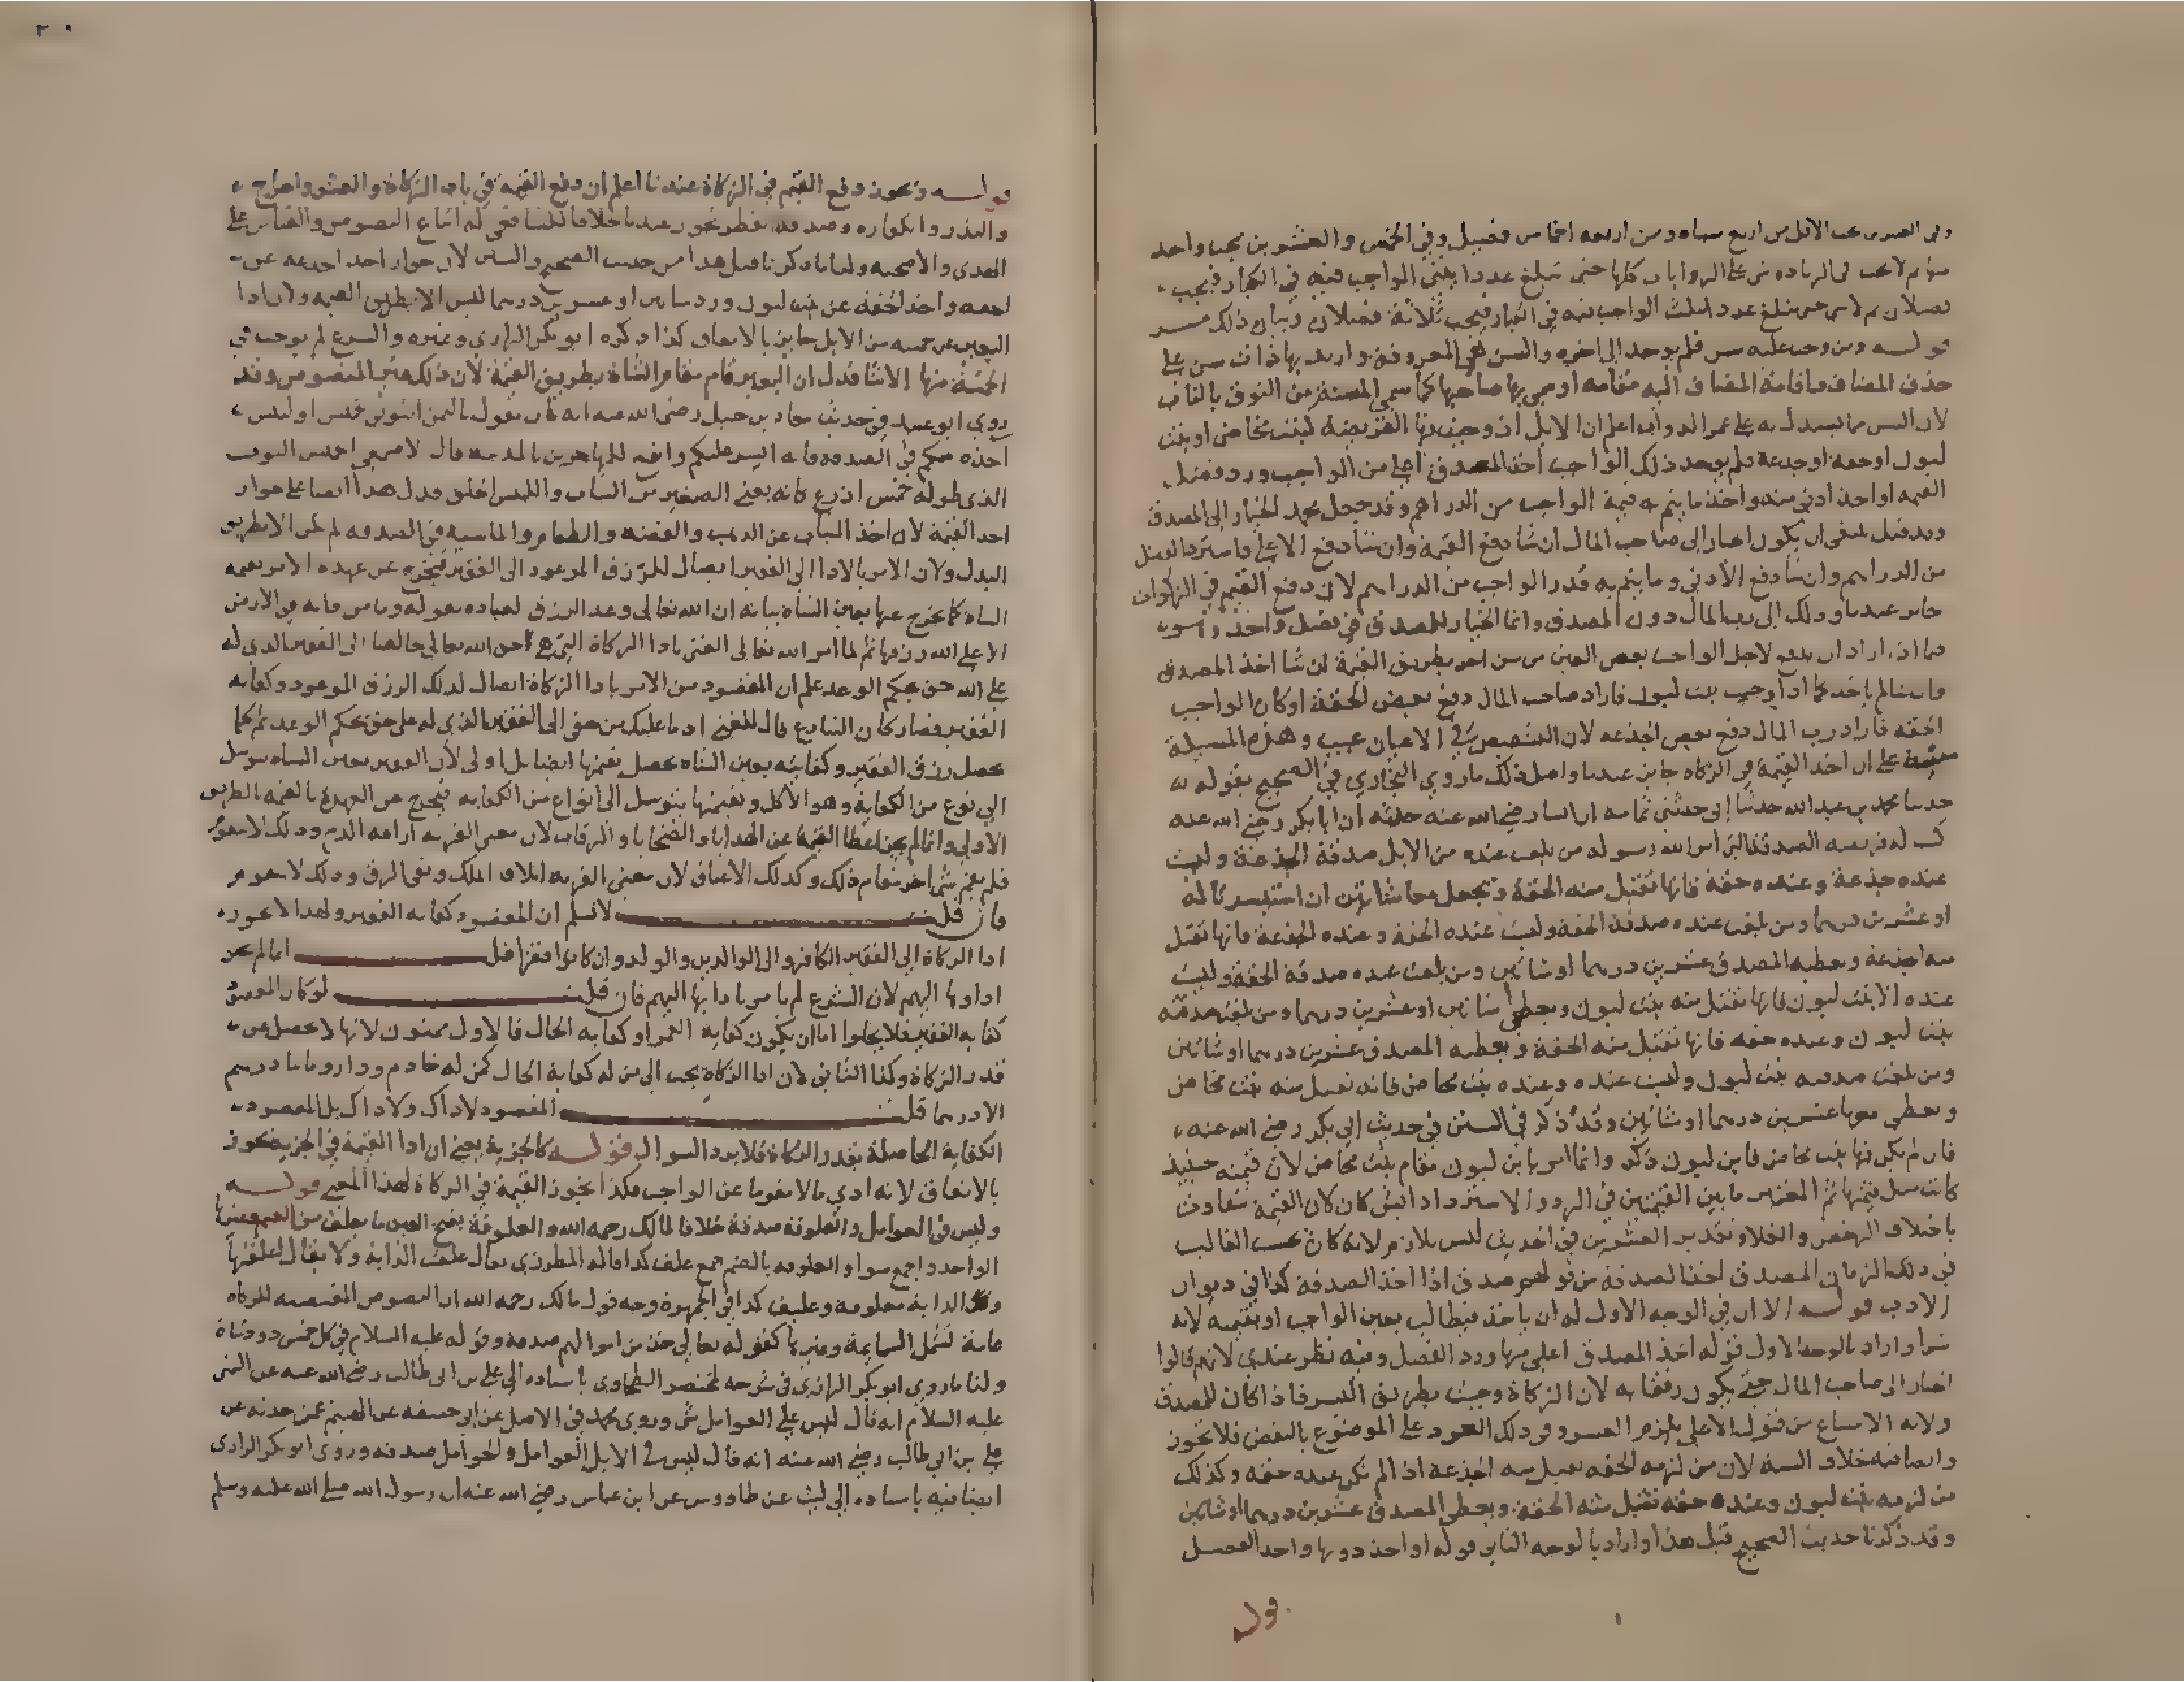 وفي العشرين يجب الاقل من اربع شياه ومن اربعة اخماس فصيل وفي الخمس والعشرين يجب واحد
ثم لا يجب في الزيادة شي على الروايات كلها حتى تبلغ عددا يثنى الواجب فيه في الكبار فيجب
فصلان ثم لا شي حتى تبلغ عددا يثلث الواجب فيه في الكبار فيجب ثلاثة فصلان وبيان ذلك
قوله ومن وجب عليه سن فلم يوجد الى اخره والسن هي المعروفة واريد بها ذات سن على
حذف المضاف واقامة المضاف اليه مقامه او سمي بها صاحبها كما سمي المسنة من النوق بالناب
لان السن مما يستدل به على عمر الدواب اعلم ان الابل اذا وجبت فيها الفريضة بنت مخاض او بنت
لبون او حقة او جذعة فلم يوجد ذلك الواجب اخذ المصدق اعلى من الواجب ورد فضل
القيمة او اخذ ادنى منه واخذ ما يتم به قيمة الواجب من الدراهم وقد جعل محمد الخيار الى المصدق
وقد قيل ينبغي ان يكون الخيار الى صاحب المال ان شا دفع القيمة وان شا دفع الاعلى واسترد الفضل
من الدراهم وان شا دفع الادنى وما يتم به قدر الواجب من الدراهم لان دفع القيم في الزكوات
جايز عندنا وذلك الى رب المال دون المصدق وانما الخيار للمصدق في فصل واحد وهو
ما اذا اراد ان يدفع لاجل الواجب بعض العين من سن اخر بطريق القيمة ان شا اخذ المصدق
وان شا لم ياخذ كما اذا وجب بنت لبون فاراد صاحب المال دفع بعض الحقة او كان الواجب
الحقة فاراد رب المال دفع بعض الجذعة لان التشقيص في الاعيان عيب وهذه المسيلة
مبنية على ان اخذ القيمة في الزكاة جايز عندنا واصل ذلك ما روي البخاري في الصحيح بقوله
حدثنا محمد بن عبد الله حدثنا ابي حدثني ثمامة ان انسا رضي الله عنه حدثه ان ابا بكر رضي الله عنه
كتب له فريضة الصدقة التي امر الله رسوله من بلغت عنده من الابل صدقة الجذعة وليست
عنده جذعة وعنده حقة فانها تقبل منه الحقة ويجعل معها شاتين ان استيسرتا له
او عشرين درهما ومن بلغت عنده صدقة الحقة وليست عنده الحقة وعنده الجذعة فانها تقبل
منه الجذعة ويعطيه المصدق عشرين درهما او شاتين ومن بلغت عنده صدقة الحقة وليست
عنده الا بنت لبون فانها تقبل منه بنت لبون ويعطي شاتين او عشرين درهما ومن بلغت صدقته
بنت لبون وعنده حقة فانها تقبل منه الحقة ويعطيه المصدق عشرين درهما او شاتين
ومن بلغت صدقته بنت لبون وليست عنده وعنده بنت مخاض فانه تقبل منه بنت مخاض
ويعطي معها عشرين درهما او شاتين وقد ذكر في السنن في حديث ابي بكر رضي الله عنه
فان لم يكن فيها بنت مخاض فابن لبون ذكر وانما امر بابن لبون مقام بنت مخاض لان قيمته حينيذ
كانت مثل قيمتها ثم المعتبر ما بين القيمتين في الرد والاسترداد ايش كان لان القيمة تتفاوت
باختلاف الرخص والغلا وتقدير العشرين في الحديث ليس بلازم لانه كان بحسب الغالب
في ذلك الزمان المصدق اخذ الصدقة من قولهم صدق اذا اخذ الصدقة كذا في ديوان
الادب قوله الا ان في الوجه الاول له ان ياخذ فيطالب بعين الواجب او بقيمته لانه
شرا واراد بالوجه الاول قوله اخذ المصدق اعلى منها ورد الفضل وفيه نظر عندي لانهم قالوا
الخيار الى صاحب المال حتى يكون رفقا به لان الزكاة وجبت بطريق اليسر فاذا كان للمصدق
ولاية الامتناع من قبول الاعلى يلزم العسر وفي ذلك العود على الموضوع بالنقض فلا يجوز
وايضا فيه خلاف السنة لان من لزمه الحقة تقبل منه الجذعة اذا لم تكن عنده حقة وكذلك
من لزمه بنت لبون وعنده حقة تقبل منه الحقة ويعطي المصدق عشرين درهما او شاتين
وقد ذكرنا حديث الصحيح قبل هذا واراد بالوجه الثاني قوله او اخذ دونها واخذ الفضل
قوله
٢٠
قوله ويجوز دفع القيم في الزكاة عندنا اعلم ان دفع القيمة في باب الزكاة والعشر والخراج
والنذر والكفارة وصدقة الفطر يجوز عندنا خلافا للشافعي له اتباع النصوص والقياس على
الهدي والاضحية ولنا ما ذكرنا قبل هذا من حديث الصحيح والسنن لان جواز اخذ الجذعة عن
الحقة واخذ الحقة عن بنت لبون ورد شاتين او عشرين درهما ليس الا بطريق القيمة ولان ادا
البعير عن خمسة من الابل جايز بالاتفاق كذا ذكره ابو بكر الرازي وغيره والشرع لم يوجب في
الخمسة منها الا شاة فدل ان البعير قام مقام الشاة بطريق القيمة لان ذلك غير المنصوص وقد
روي ابو عبيد في حديث معاذ بن جبل رضي الله عنه انه كان يقول باليمن ايتوني بخميس او لبيس
اخذه منكم في الصدقة فانه ايسر عليكم وانفع للمهاجرين بالمدينة قال الاصمعي الخميس الثوب
الذي طوله خمس اذرع كانه يعني الصغير من الثياب واللبيس الخلق فدل هذا ايضا على جواز
اخذ القيمة لان اخذ الثياب عن الذهب والفضة والطعام والماشية في الصدقة لم يكن الا بطريق
البدل ولان الامر بالادا الى الفقير ايصال للرزق الموعود الى الفقير فيخرج عن عهدة الامر بقيمة
الشاة كما يخرج عنها بعين الشاة بيانه ان الله تعالى وعد الرزق لعباده بقوله وما من دابة في الارض
الا على الله رزقها ثم لما امر الله تعالى الغني بادا الزكاة التي هي حق الله تعالى خالصا الى الفقير الذي له
على الله حق بحكم الوعد علم ان المقصود من الامر بادا الزكاة ايصال لذلك الرزق الموعود وكفاية
الفقير فصار كان الشارع قال للغني اد ما عليك من حقي الى الفقير الذي له علي حق بحكم الوعد ثم كما
يحصل رزق الفقير وكفايته بعين الشاة يحصل بقيمتها ايضا بل اولى لان الفقير بعين الشاة يتوسل
الى نوع من الكفاية وهو الاكل وبقيمتها يتوسل الى انواع من الكفاية فيخرج عن العهدة بالقيمة بالطريق
الاولى وانما لم يجز اعطا القيمة عن الهدايا والضحايا والرقاب لان معنى القربة اراقة الدم وذلك لا يتقوم
فلم يقم شي اخر مقام ذلك وكذلك الاعتاق لان معنى القربة اتلاف الملك ونفي الرق وذلك لا يتقوم
فان قلت لا نسلم ان المقصود كفاية الفقير ولهذا لا يجوز
ادا الزكاة الى الفقير الكافر والى الوالدين والولد وان كانوا فقرا قلت انما لم يجز
اداوها اليهم لان الشرع لم يامر بادايها اليهم فان قلت لو كان المقصود
كفاية الفقير فلا يخلوا اما ان يكون كفاية العمر او كفاية الحال فالاول ممنوع لانها لا تحصل من
قدر الزكاة وكذا الثاني لان ادا الزكاة يجب الى من له كفاية الحال كمن له خادم ودار ومايتا درهم
الا درهما قلت المقصود لا ذاك ولا ذاك بل المقصود
الكفاية الحاصلة بقدر الزكاة فلا يرد السوال قوله كالجزية يعني ان ادا القيمة في الجزية يجوز
بالاتفاق لانه ادي مالا متقوما عن الواجب فكذا يجوز القيمة في الزكاة لهذا المعنى قوله
وليس في العوامل والعلوفة صدقة خلافا لمالك رحمه الله والعلوفة بفتح العين ما يعلف من الغنم وغيرها
الواحد والجمع سوا والعلوفة بالضم جمع علف كذا قاله المطرزي يقال علفت الدابة ولا يقال اعلفتها
والدابة معلوفة وعليف كذا في الجمهرة وجه قول مالك رحمه الله ان النصوص المقتضية للزكاة
عامة تشمل السايمة وغيرها كقوله تعالى خذ من اموالهم صدقة وقوله عليه السلام في كل خمس ذود شاة
ولنا ما روي ابو بكر الرازي في شرحه لمختصر الطحاوي باسناده الى علي بن ابي طالب رضي الله عنه عن النبي
عليه السلام انه قال ليس على العوامل شي وروي محمد في الاصل عن ابي حنيفة عن الهيثم عمن حدثه عن
علي بن ابي طالب رضي الله عنه انه قال ليس في الابل العوامل والحوامل صدقة وروي ابو بكر الرازي
ايضا فيه باسناده الى ليث عن طاووس عن ابن عباس رضي الله عنه ان رسول الله صلى الله عليه وسلم